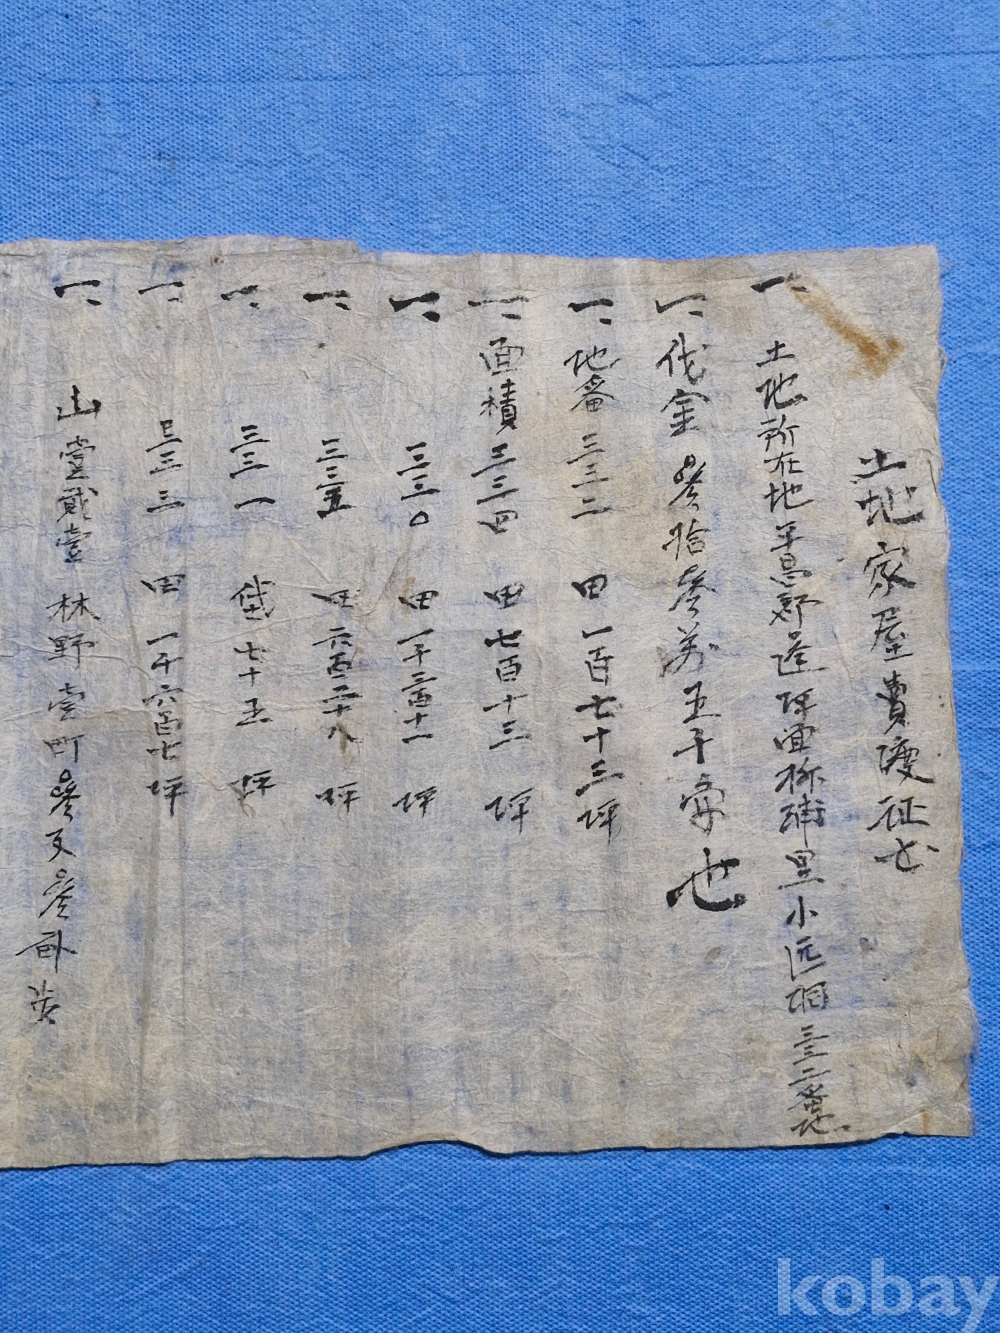 土地家屋賣渡证书
一、土地所在地 平昌郡蓬坪面 里小 洞三三二番地
一、代金 參拾參萬五千 也
一、地番 三三二 田 一百七十三坪
一、面積 三三四 田 七百十三 坪
一、三三〇 田 一千三百十一 坪
一、三三五 田 六百二十八 坪
一、三三一 垈 七十五 坪
一、三三三 田 一千六百七坪
一、山壹貳壹 林野 壹町參反參畝步
kobay